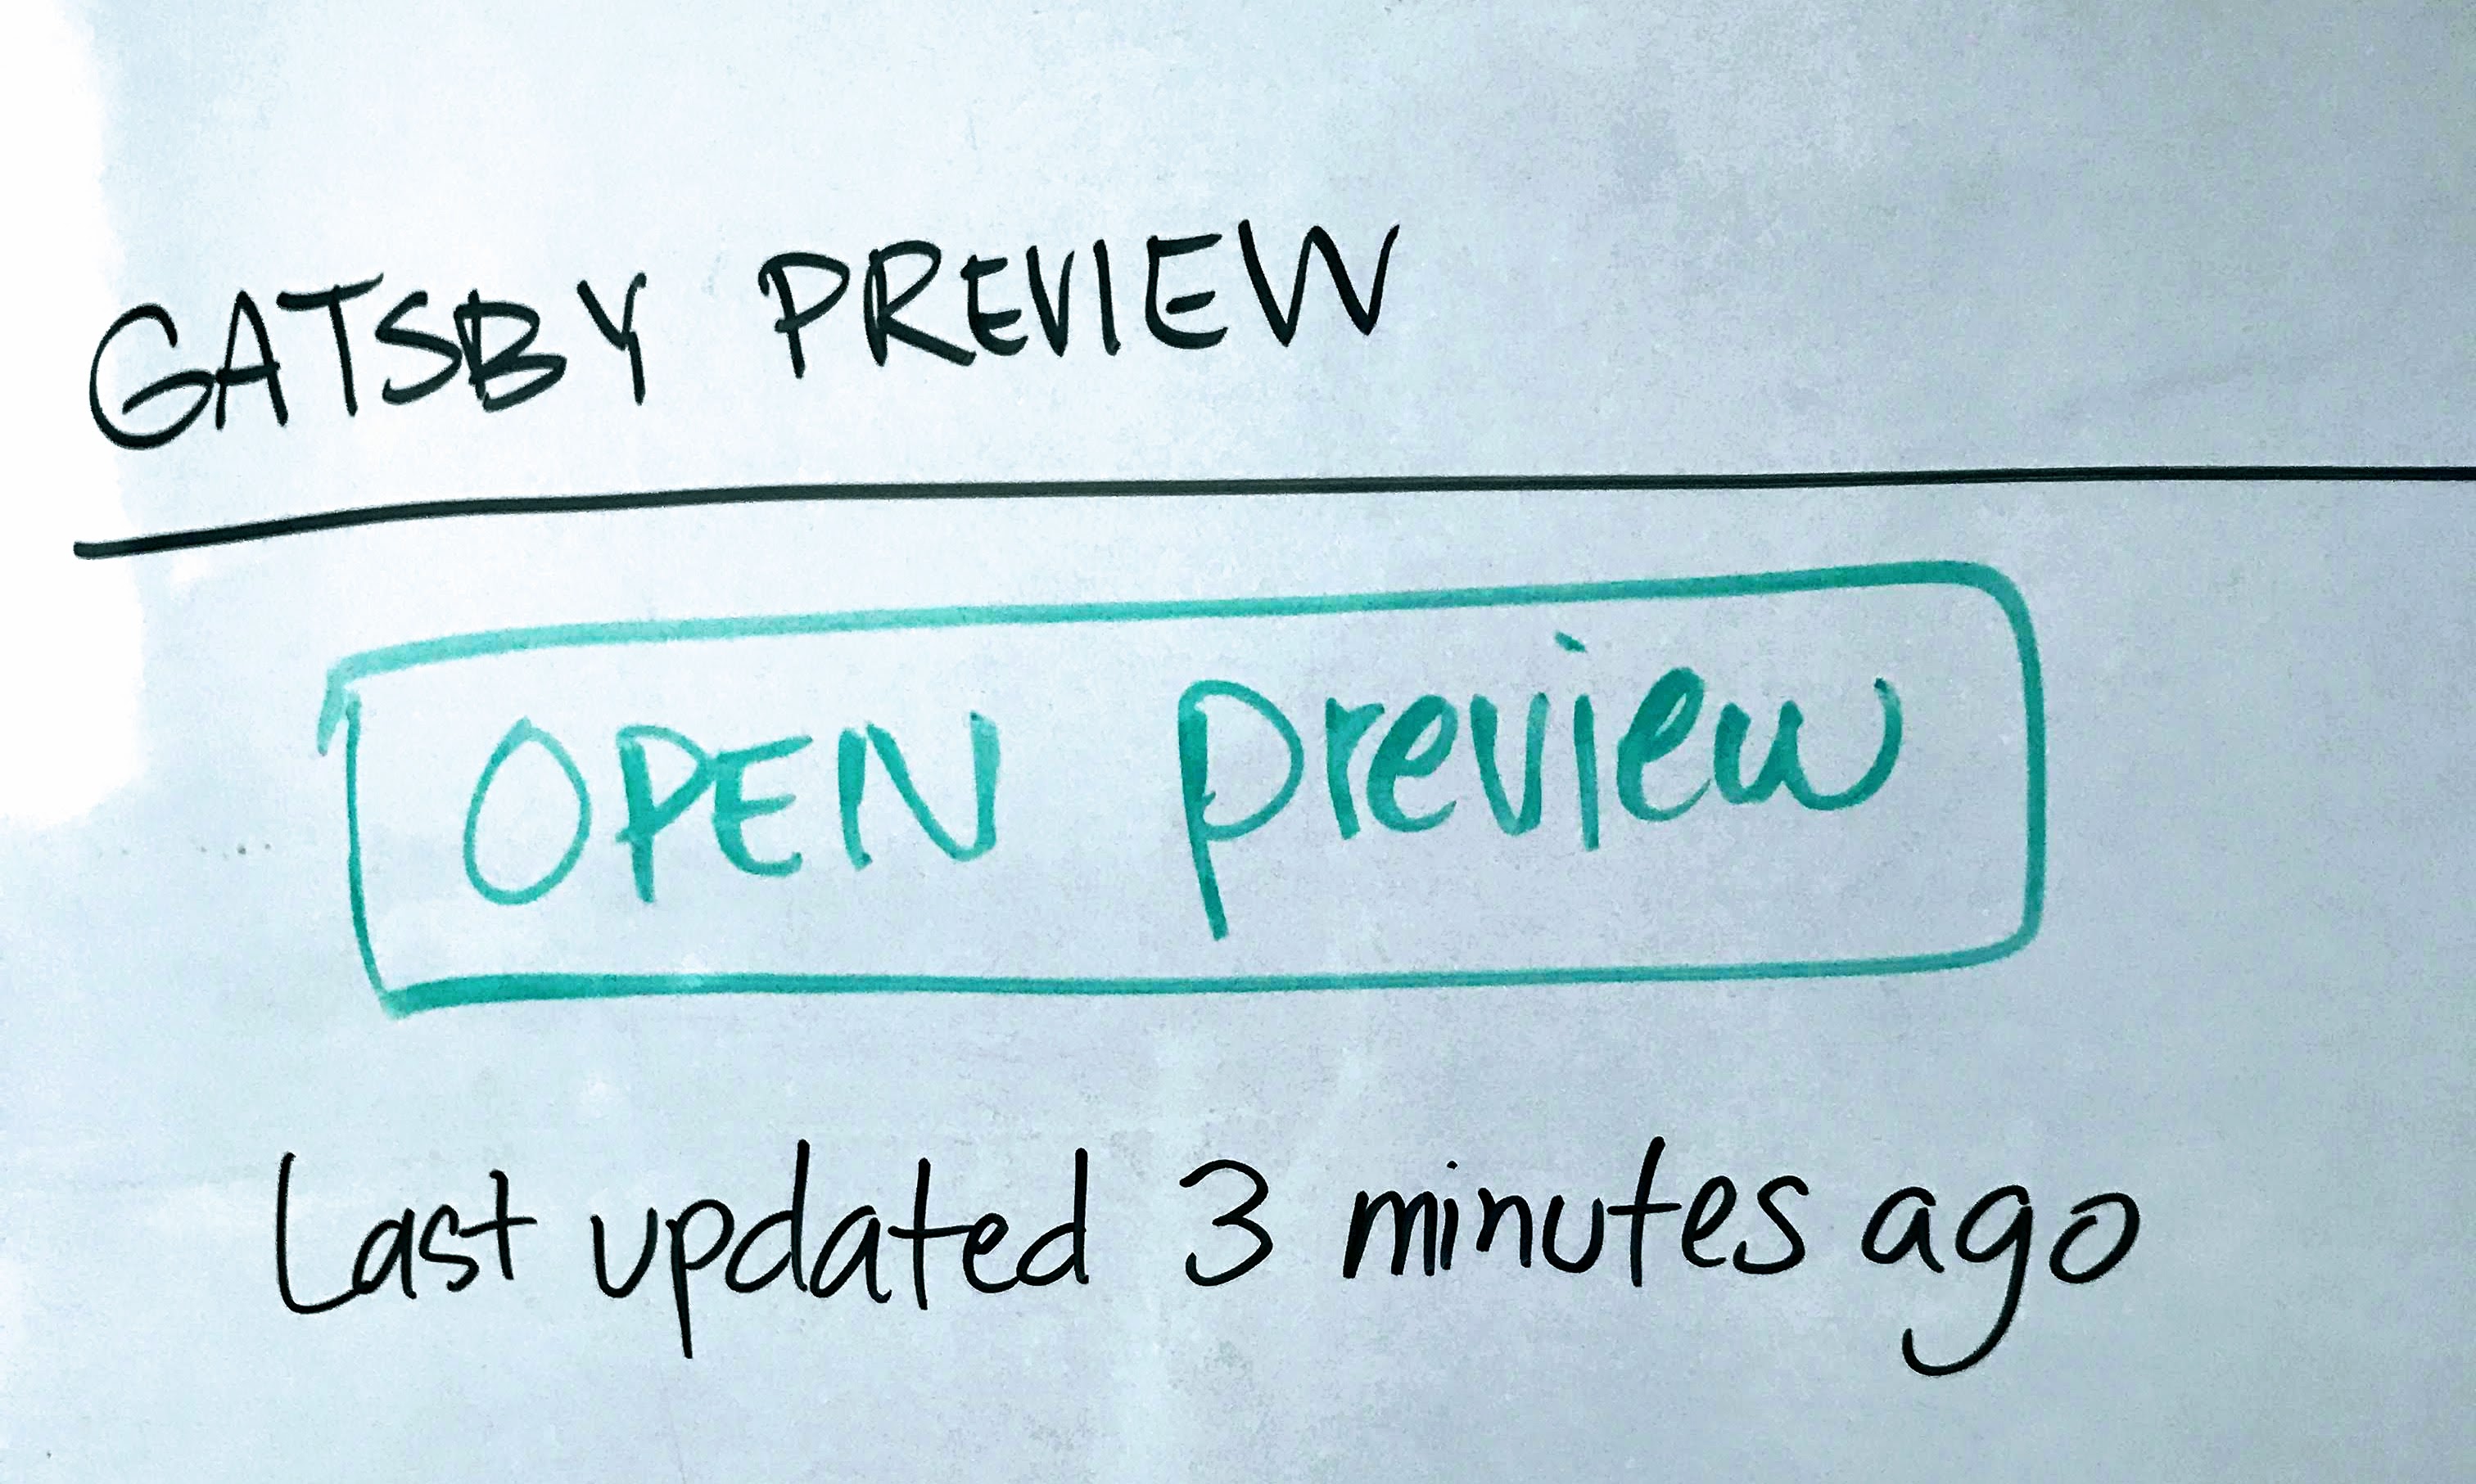 GATSBY PREVIEW
OPEN preview
Last updated 3 minutes ago